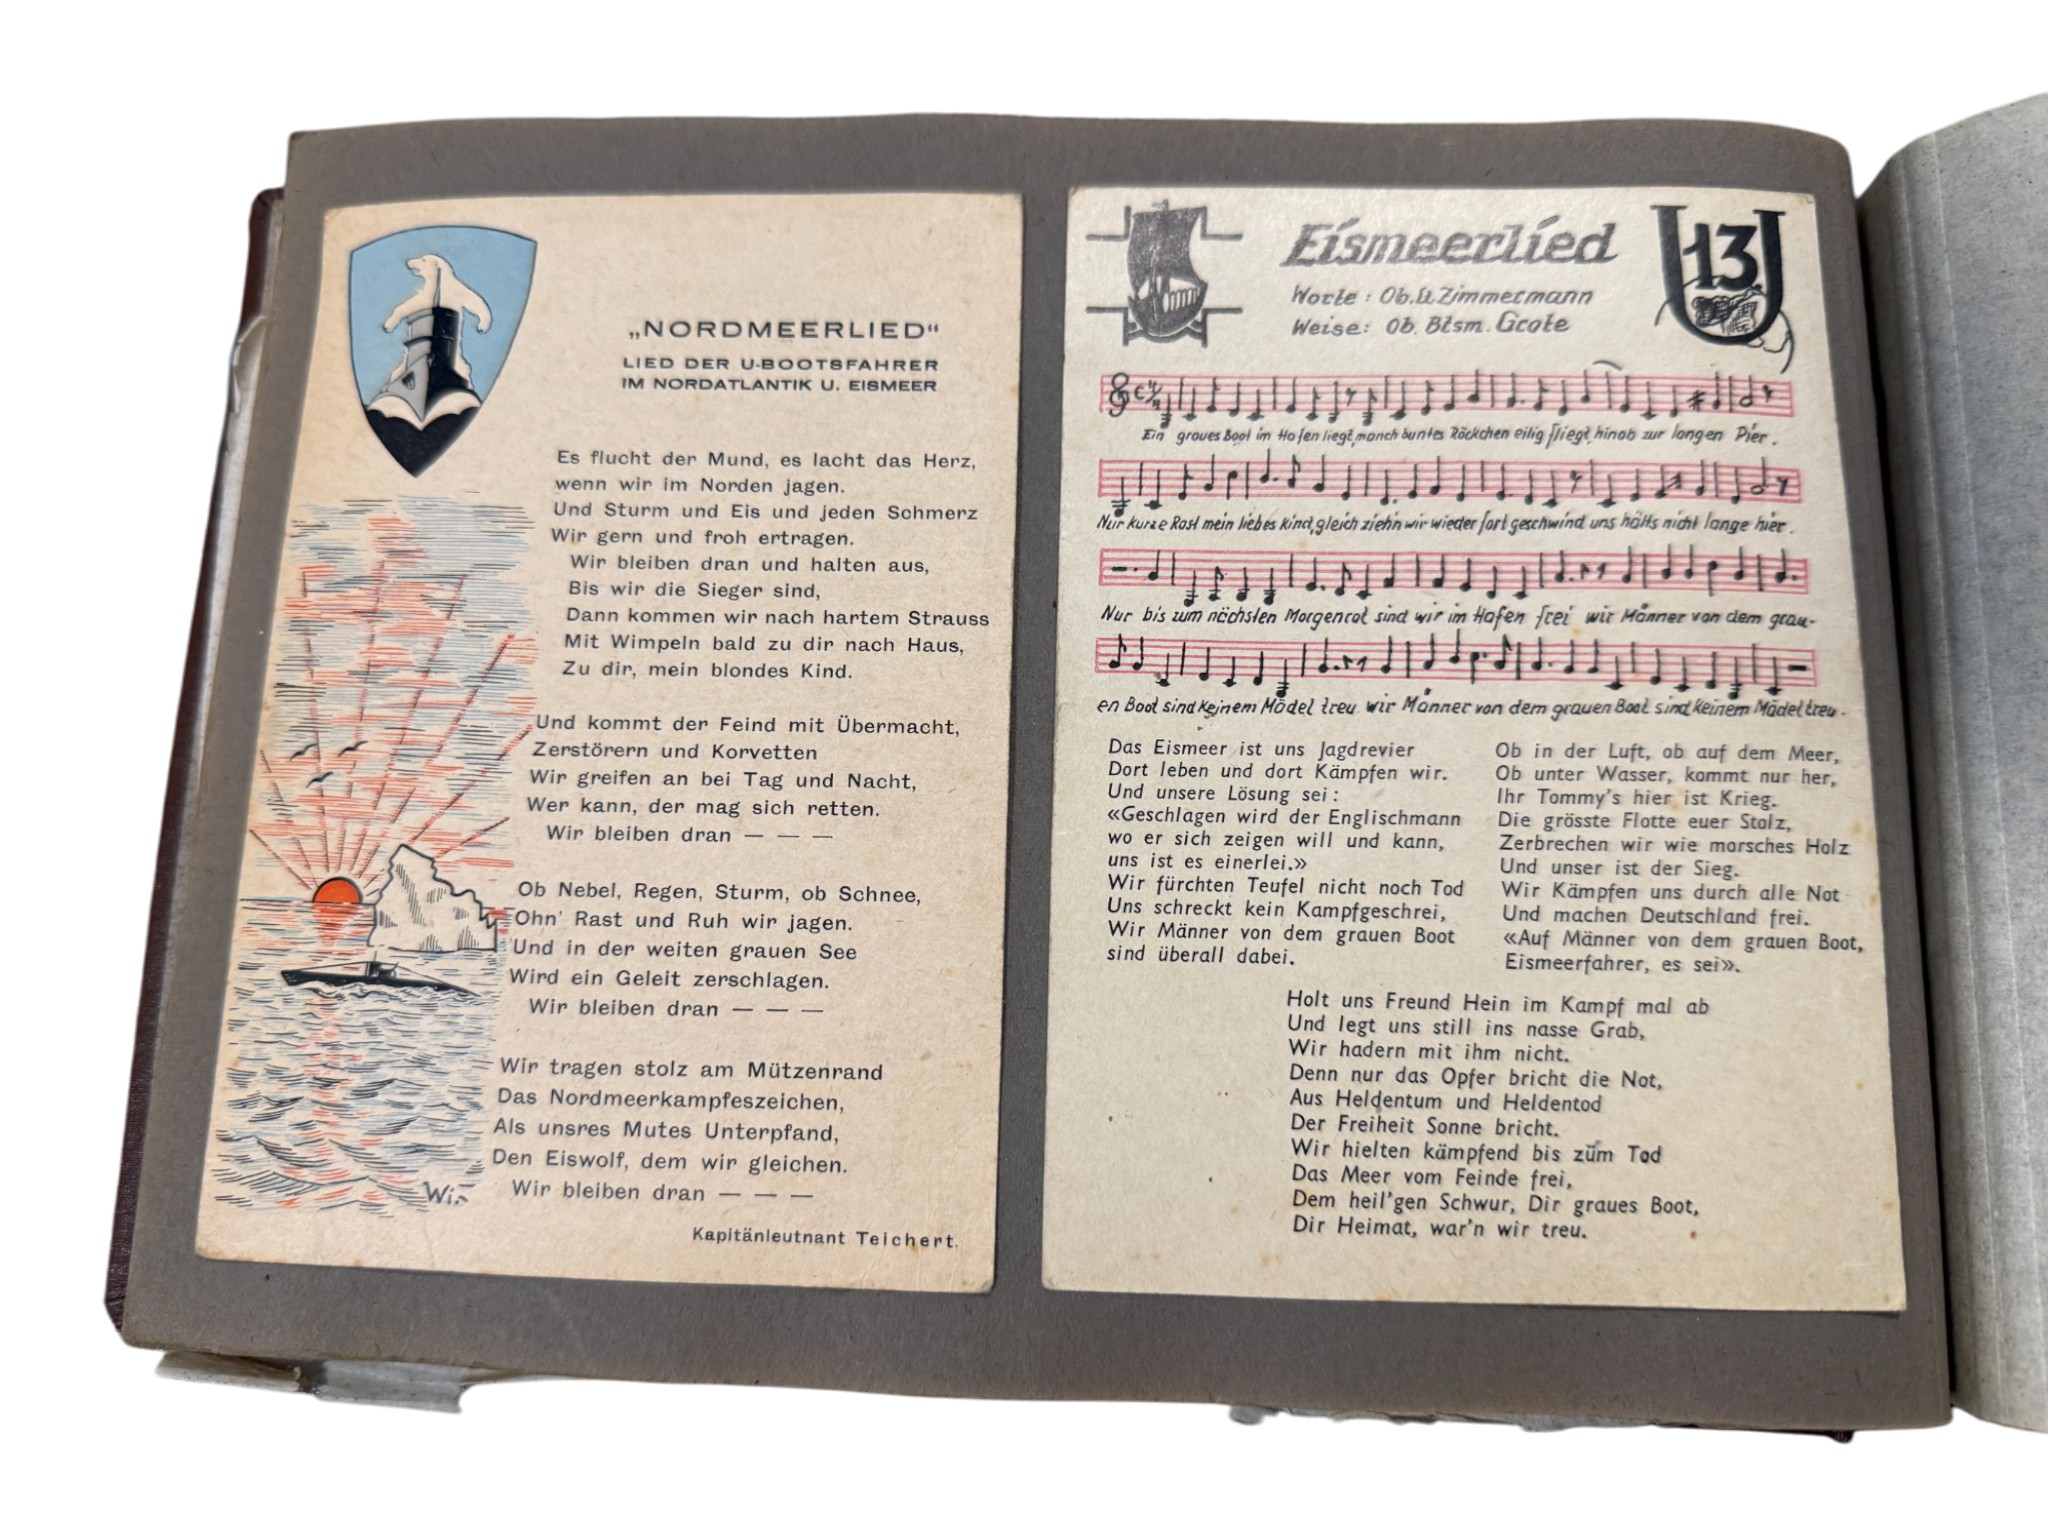 „NORDMEERLIED“
LIED DER U-BOOTSFAHRER
IM NORDATLANTIK U. EISMEER
Es flucht der Mund, es lacht das Herz,
wenn wir im Norden jagen.
Und Sturm und Eis und jeden Schmerz
Wir gern und froh ertragen.
Wir bleiben dran und halten aus,
Bis wir die Sieger sind,
Dann kommen wir nach hartem Strauss
Mit Wimpeln bald zu dir nach Haus,
Zu dir, mein blondes Kind.
Und kommt der Feind mit Übermacht,
Zerstörern und Korvetten
Wir greifen an bei Tag und Nacht,
Wer kann, der mag sich retten.
Wir bleiben dran — — —
Ob Nebel, Regen, Sturm, ob Schnee,
Ohn' Rast und Ruh wir jagen.
Und in der weiten grauen See
Wird ein Geleit zerschlagen.
Wir bleiben dran — — —
Wir tragen stolz am Mützenrand
Das Nordmeerkampfeszeichen,
Als unsres Mutes Unterpfand,
Den Eiswolf, dem wir gleichen.
Wir bleiben dran — — —
Wi.
Kapitänleutnant Teichert.
Eismeerlied
U 13
Worte: Ob.Lt. Zimmermann
Weise: Ob. Btsm. Grote
Ein graues Boot im Hafen liegt, manch buntes Röckchen eilig fliegt, hinab zur langen Pier.
Nur kurze Rast mein liebes Kind, gleich ziehn wir wieder fort geschwind uns hälts nicht lange hier.
Nur bis zum nächsten Morgenrot sind wir im Hafen frei wir Männer von dem grau-
en Boot sind keinem Mädel treu wir Männer von dem grauen Boot sind keinem Mädel treu.
Das Eismeer ist uns Jagdrevier
Dort leben und dort Kämpfen wir.
Und unsere Lösung sei:
«Geschlagen wird der Englischmann
wo er sich zeigen will und kann,
uns ist es einerlei.»
Wir fürchten Teufel nicht noch Tod
Uns schreckt kein Kampfgeschrei,
Wir Männer von dem grauen Boot
sind überall dabei.
Ob in der Luft, ob auf dem Meer,
Ob unter Wasser, kommt nur her,
Ihr Tommy's hier ist Krieg.
Die grösste Flotte euer Stolz,
Zerbrechen wir wie morsches Holz
Und unser ist der Sieg.
Wir Kämpfen uns durch alle Not
Und machen Deutschland frei.
«Auf Männer von dem grauen Boot,
Eismeerfahrer, es sei».
Holt uns Freund Hein im Kampf mal ab
Und legt uns still ins nasse Grab,
Wir hadern mit ihm nicht.
Denn nur das Opfer bricht die Not,
Aus Heldentum und Heldentod
Der Freiheit Sonne bricht.
Wir hielten kämpfend bis züm Tod
Das Meer vom Feinde frei,
Dem heil'gen Schwur, Dir graues Boot,
Dir Heimat, war'n wir treu.